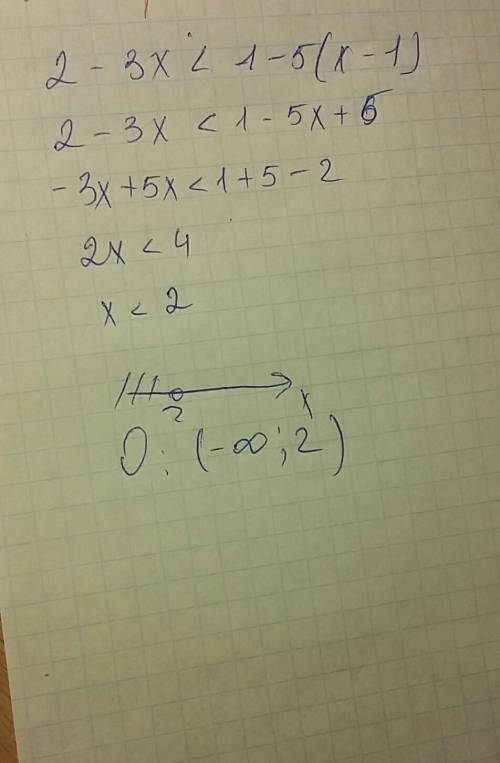 2 - 3x < 1 - 5(x - 1)
2 - 3x < 1 - 5x + 5
-3x + 5x < 1 + 5 - 2
2x < 4
x < 2
2 x
O: (-∞; 2)